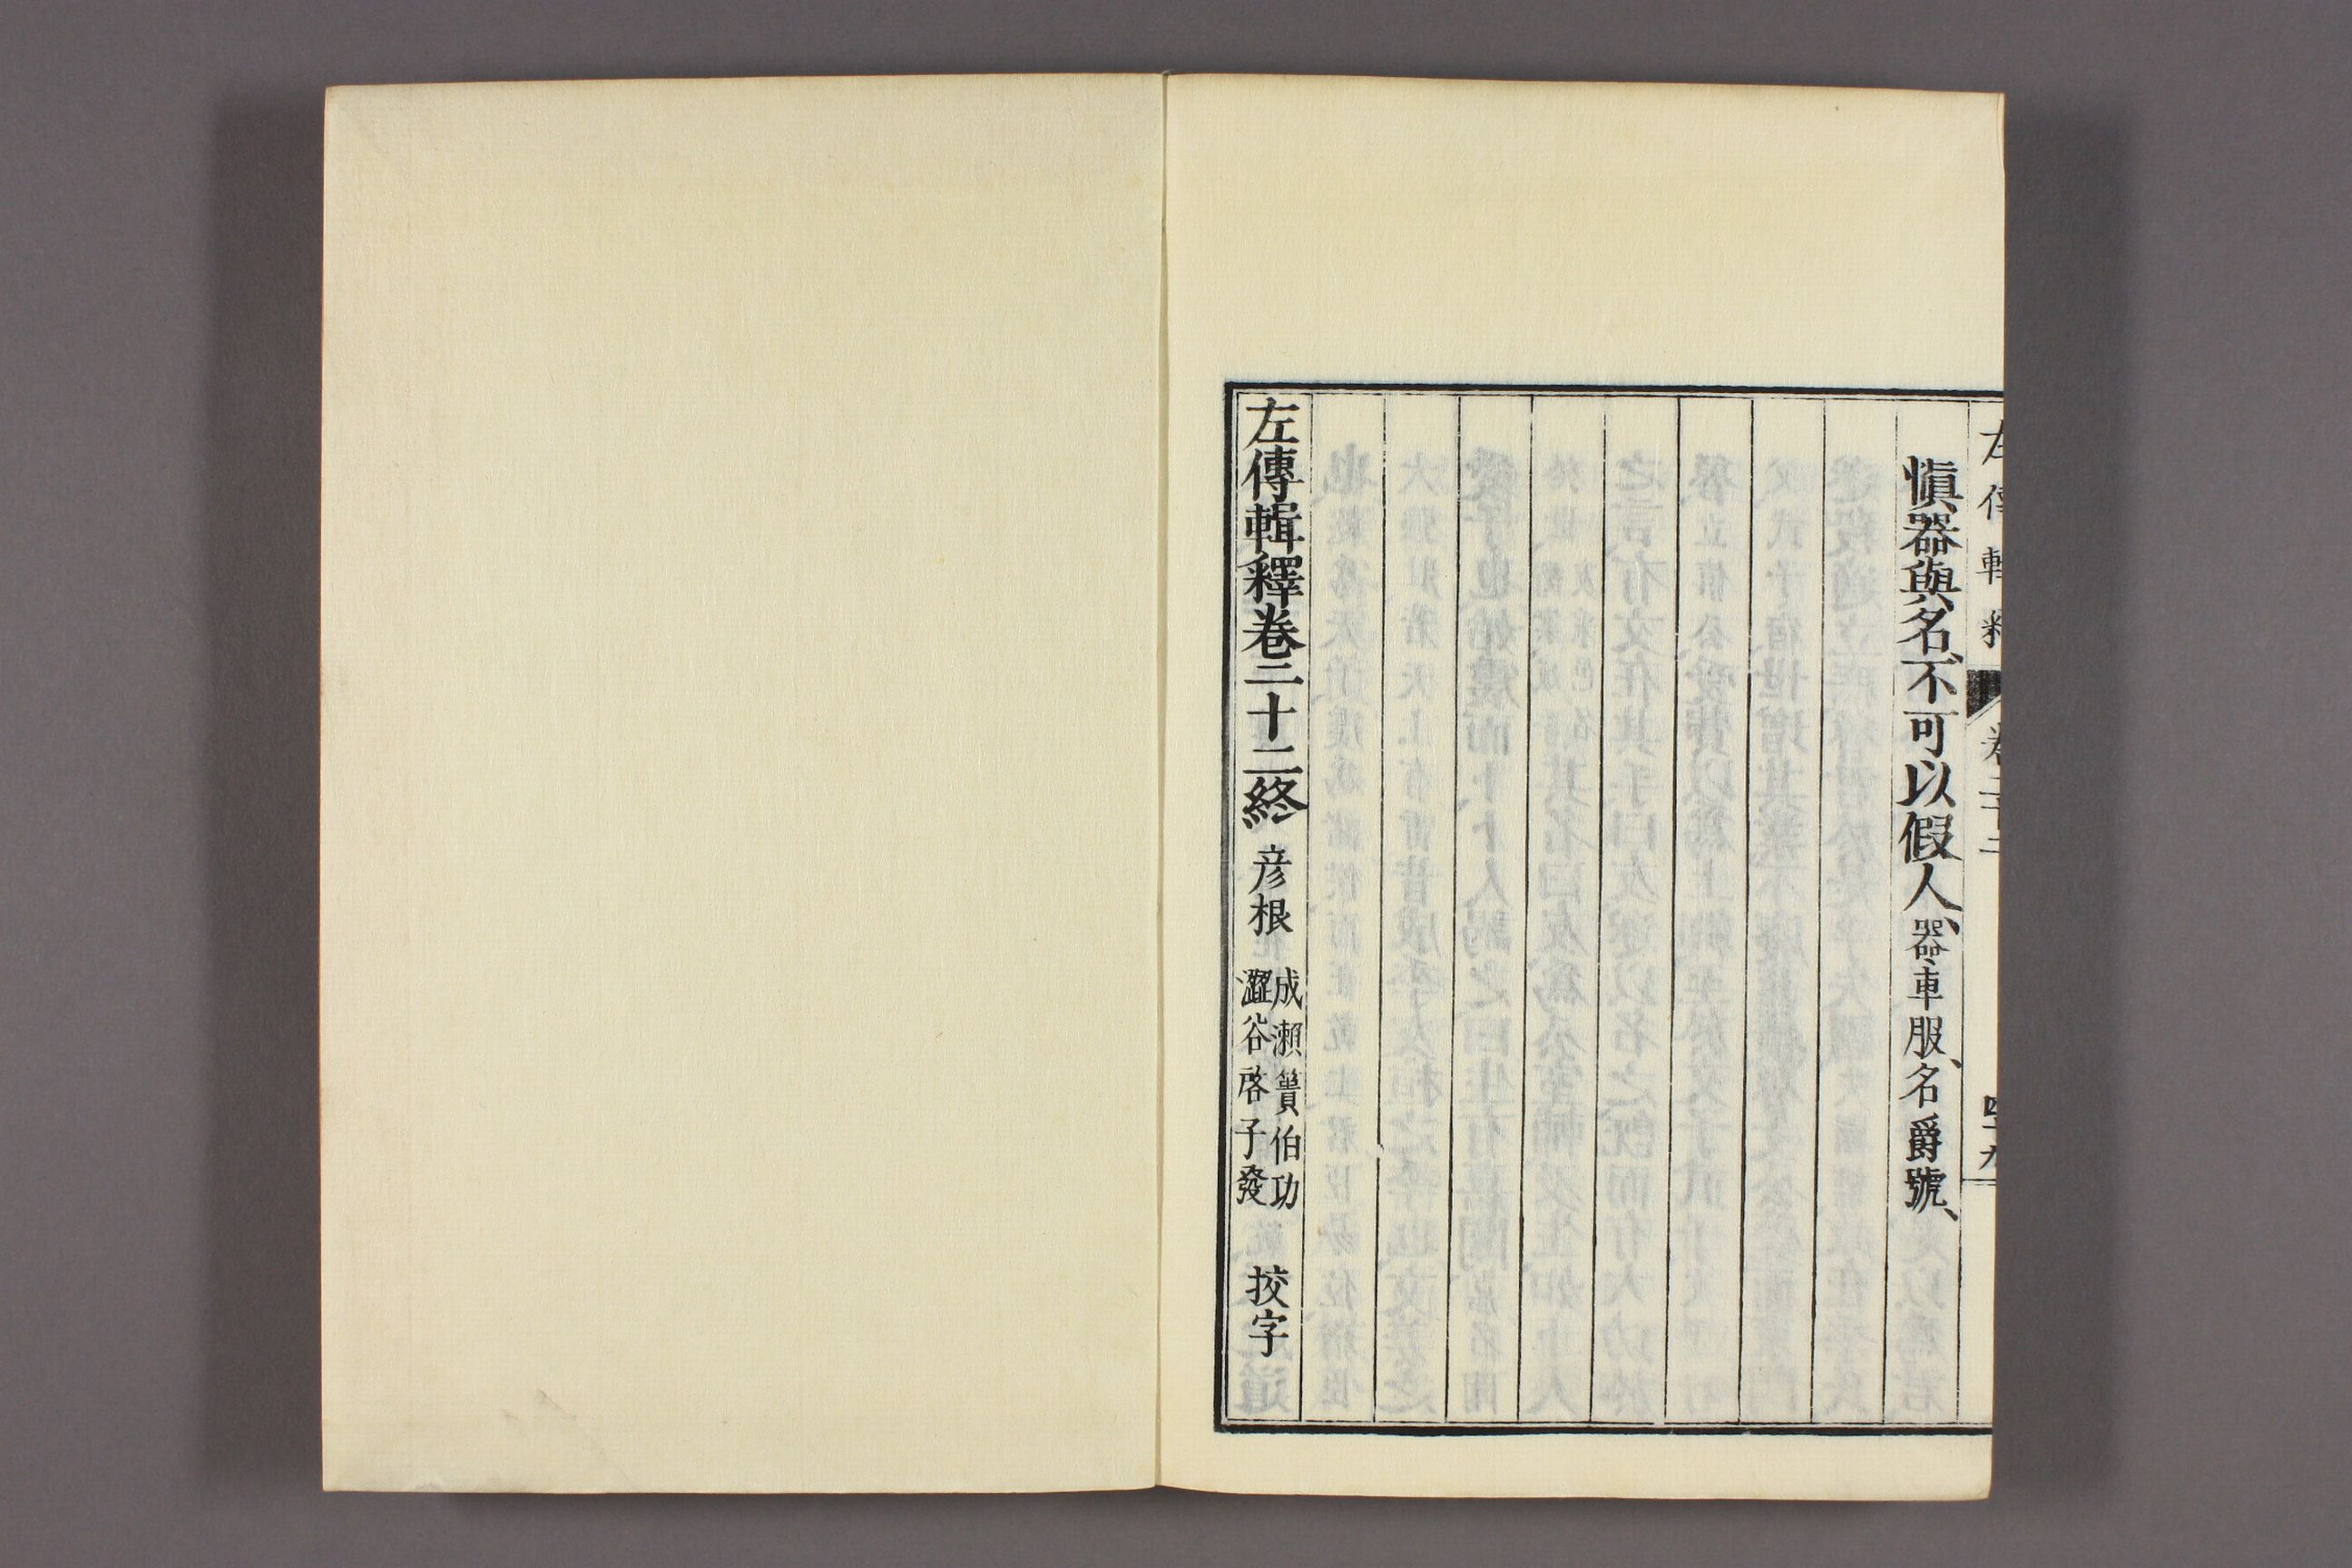 左傳輯釋 卷二十二 四十九
愼器與名、不可以假人、器、車服、名、爵號、
左傳輯釋卷二十二終 彦根 成瀬簣伯功 澀谷啓子發 挍字